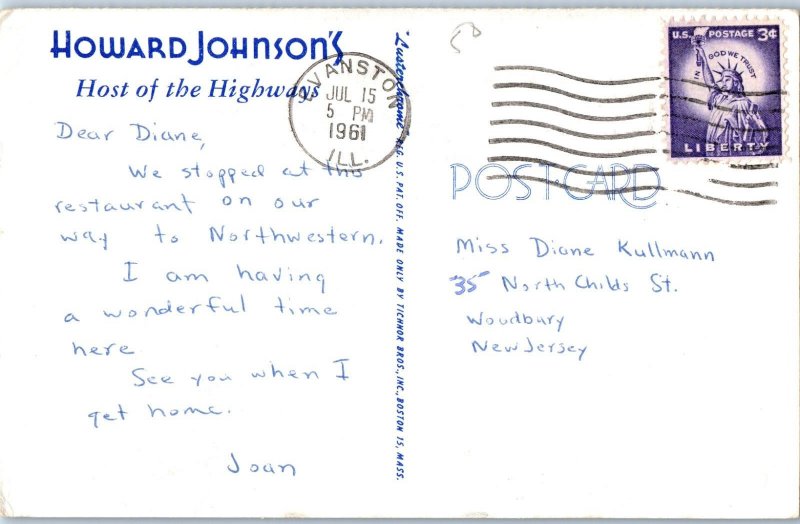 HOWARD JOHNSON'S
Host of the Highways
Dear Diane,
We stopped at this
restaurant on our
way to Northwestern.
I am having
a wonderful time
here
See you when I
get home.
Joan
EVANSTON
JUL 15
5 PM
1961
ILL.
"Lusterchrome" REG. U.S. PAT. OFF. MADE ONLY BY TICHNOR BROS., INC., BOSTON 15, MASS.
U.S. POSTAGE 3¢
IN GOD WE TRUST
LIBERTY
POST CARD
Miss Diane Kullmann
35 North Childs St.
Woodbury
New Jersey